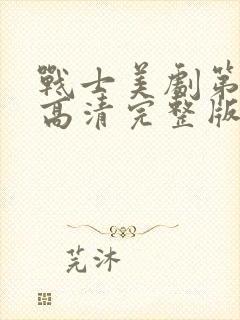 戰士美劇第
高清完整版
芫沐